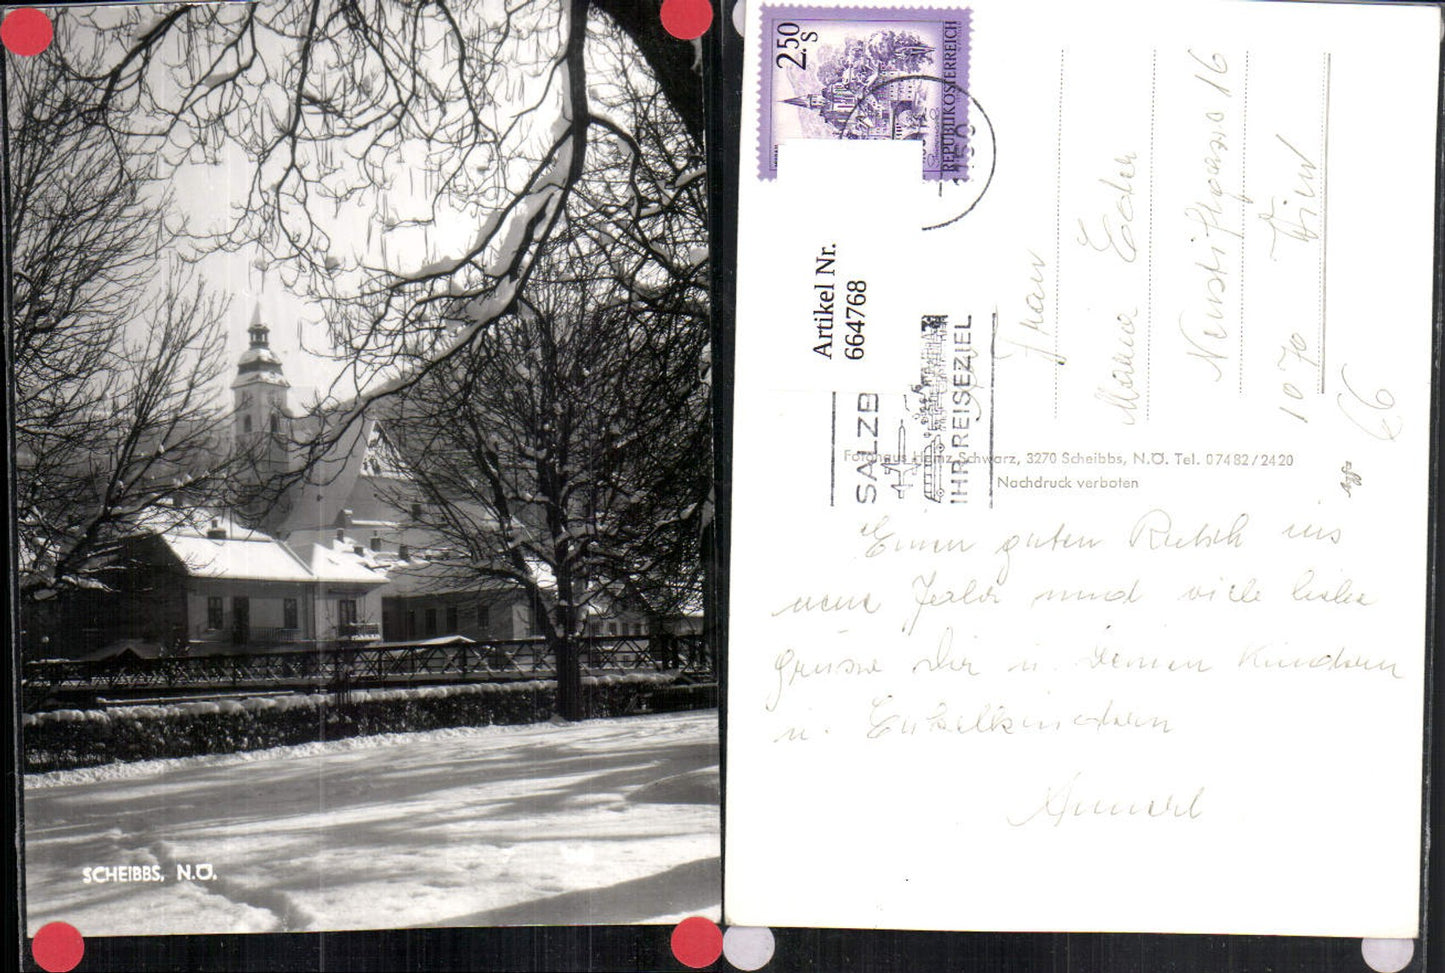 SCHEIBBS, N.Ö.
2.50
S
REPUBLIK ÖSTERREICH
Artikel Nr.
664768
SALZB
IHR REISEZIEL
Frau
Maria Eder
Neustiftgasse 16
1070 Wien
66
Fotohaus Heinz Schwarz, 3270 Scheibbs, N.Ö. Tel. 07482/2420
Nachdruck verboten
Einen guten Rutsch ins
neue Jahr und viele liebe
Grüsse Dir u. Deinen Kindern
u. Enkelkindern